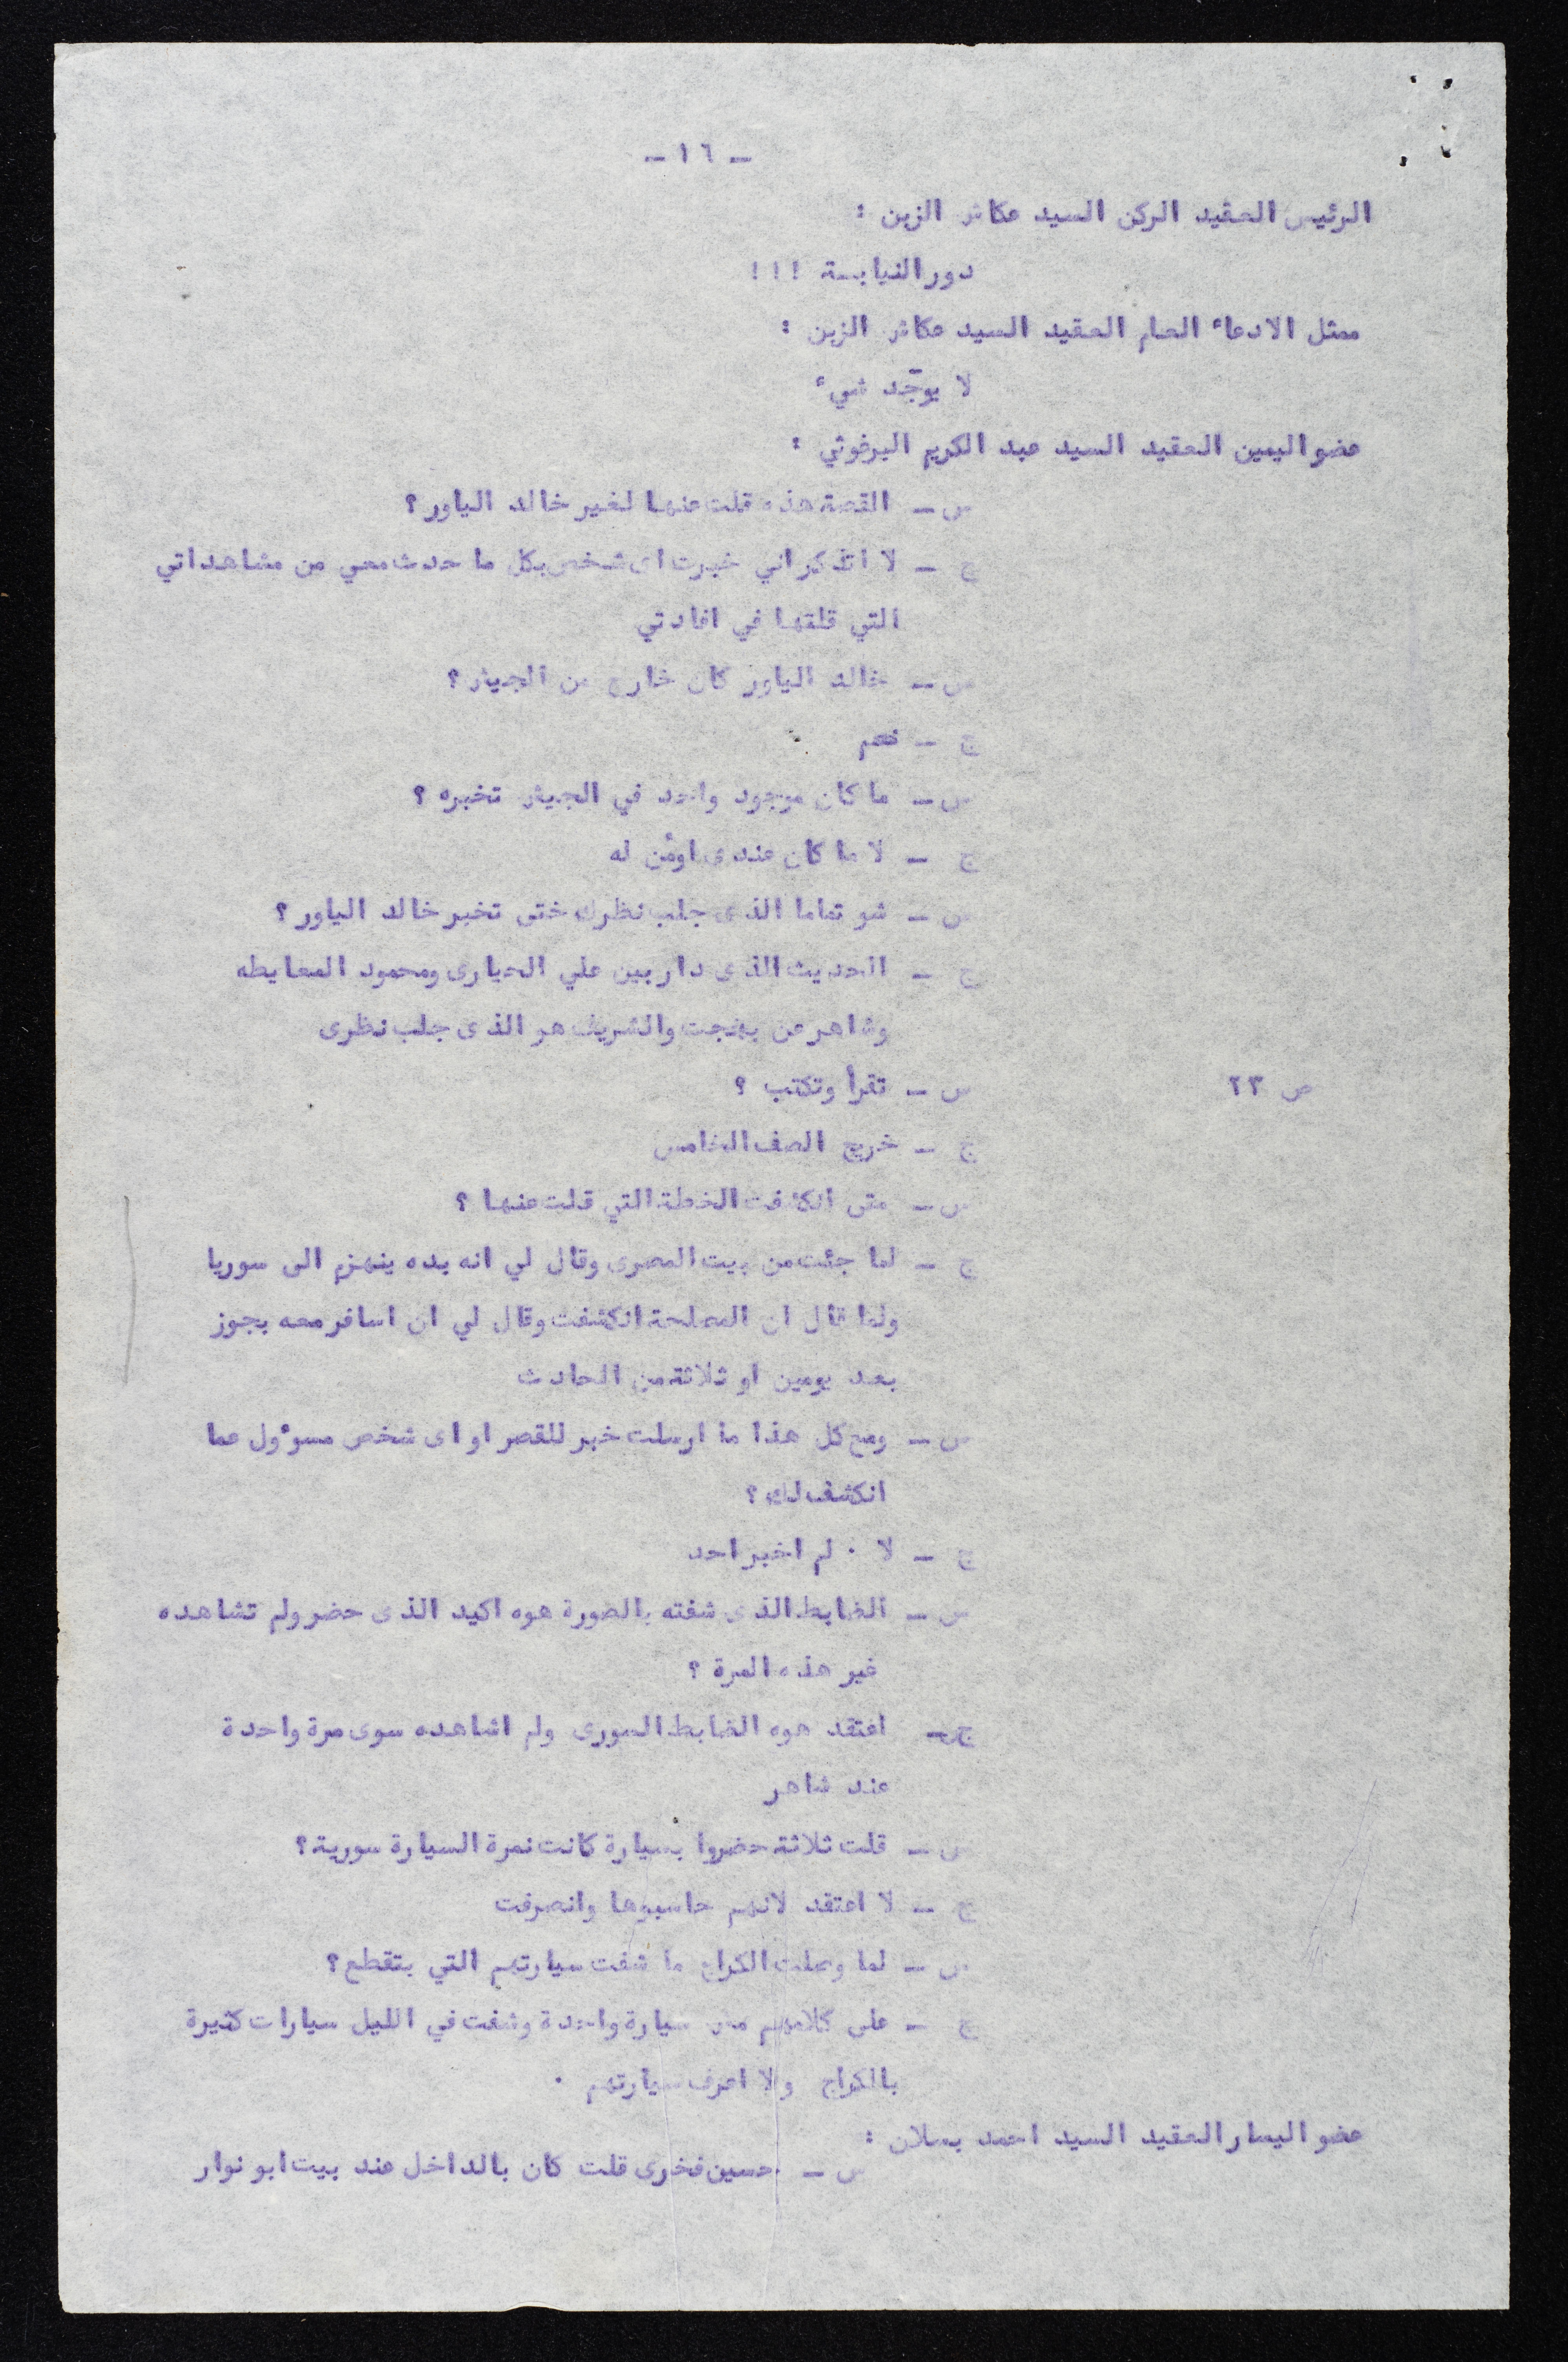 - ١٦ -
الرئيس العقيد الركن السيد عكاش الزبن :
دور النيابة !!!
ممثل الادعاء العام العقيد السيد عكاش الزبن :
لا يوجد شيء
عضو اليمين العقيد السيد عبد الكريم البرغوثي :
س - القصة هذه قلت عنها لغير خالد الياور ؟
ج - لا اتذكر اني خبرت اى شخص بكل ما حدث معي من مشاهداتي
التي قلتها في افادتي
س - خالد الياور كان خارج من الجيش ؟
ج - نعم
س - ما كان موجود واحد في الجيش تخبره ؟
ج - لا ما كان عندى اومن له
س - شو تماما الذى جلب نظرك حتى تخبر خالد الياور ؟
ج - الحديث الذى دار بين علي الحيارى ومحمود المعايطه
وشاهر عن بهجت والشريف هو الذى جلب نظرى
ص ٢٢ س - تقرأ وتكتب ؟
ج - خريج الصف الخامس
س - متى انكشفت الخطة التي قلت عنها ؟
ج - لما جئت من بيت المصرى وقال لي انه بده ينهزم الى سوريا
ولما قال ان المصلحة انكشفت وقال لي ان اسافر معه يجوز
بعد يومين او ثلاثة من الحادث
س - ومع كل هذا ما ارسلت خبر للقصر او اى شخص مسوءول عما
انكشف لك ؟
ج - لا . لم اخبر احد
س - الضابط الذى شفته بالصورة هوه اكيد الذى حضر ولم تشاهده
غير هذه المرة ؟
ج - اعتقد هوه الضابط السورى ولم اشاهده سوى مرة واحدة
عند شاهر
س - قلت ثلاثة حضروا بسيارة كانت نمرة السيارة سورية ؟
ج - لا اعتقد لانهم حاسبوها وانصرفت
س - لما وصلت الكراج ما شفت سيارتهم التي بتقطع ؟
ج - على كلامهم معى سيارة واحدة وشفت في الليل سيارات كثيرة
بالكراج ولا اعرف سيارتهم .
عضو اليسار العقيد السيد احمد بسلان :
س - حسين فخرى قلت كان بالداخل عند بيت ابو نوار